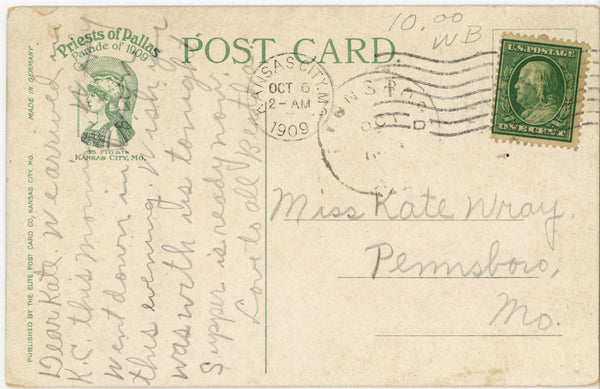 Priests of Pallas
Parade of 1909
KANSAS CITY, MO.
MADE IN GERMANY
PUBLISHED BY THE ELITE POST CARD CO, KANSAS CITY, MO.
POST CARD.
10.00
WB
KANSAS CITY, MO.
OCT 6
2-AM
1909
OCT
U.S. POSTAGE
ONE CENT
Dear Kate We arrived in
K.C. this morning
went down in
this evening. Wish you
was with us tonight.
Supper is ready now.
Love to all Bertha
Miss Kate Wray,
Pennsboro,
Mo.